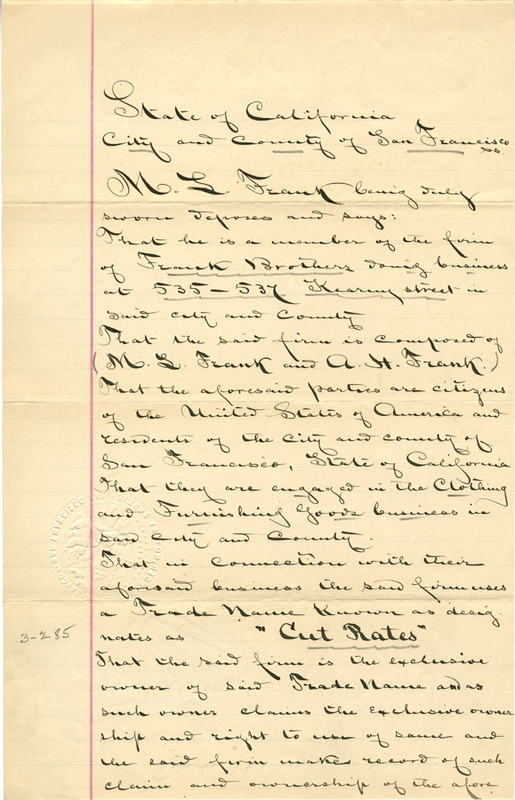 State of California
City and County of San Francisco ss
M. L. Frank being duly
sworn deposes and says:
That he is a member of the firm
of Frank Brothers doing business
at 535–537 Kearny street in
said city and County
That the said firm is composed of
(M. L. Frank and A. H. Frank.)
That the aforesaid parties are citizens
of the United States of America and
residents of the City and County of
San Francisco, State of California
That they are engaged in the Clothing
and Furnishing Goods business in
said City and County.
That in connection with their
aforsaid business the said firm uses
a Trade Name Known as desig
3-2.85
nates as "Cut Rates"
That the said firm is the exclusive
owner of said Trade Name and as
such owner claims the exclusive owner
ship and right to use of same and
the said firm makes record of such
claim and ownership of the afore